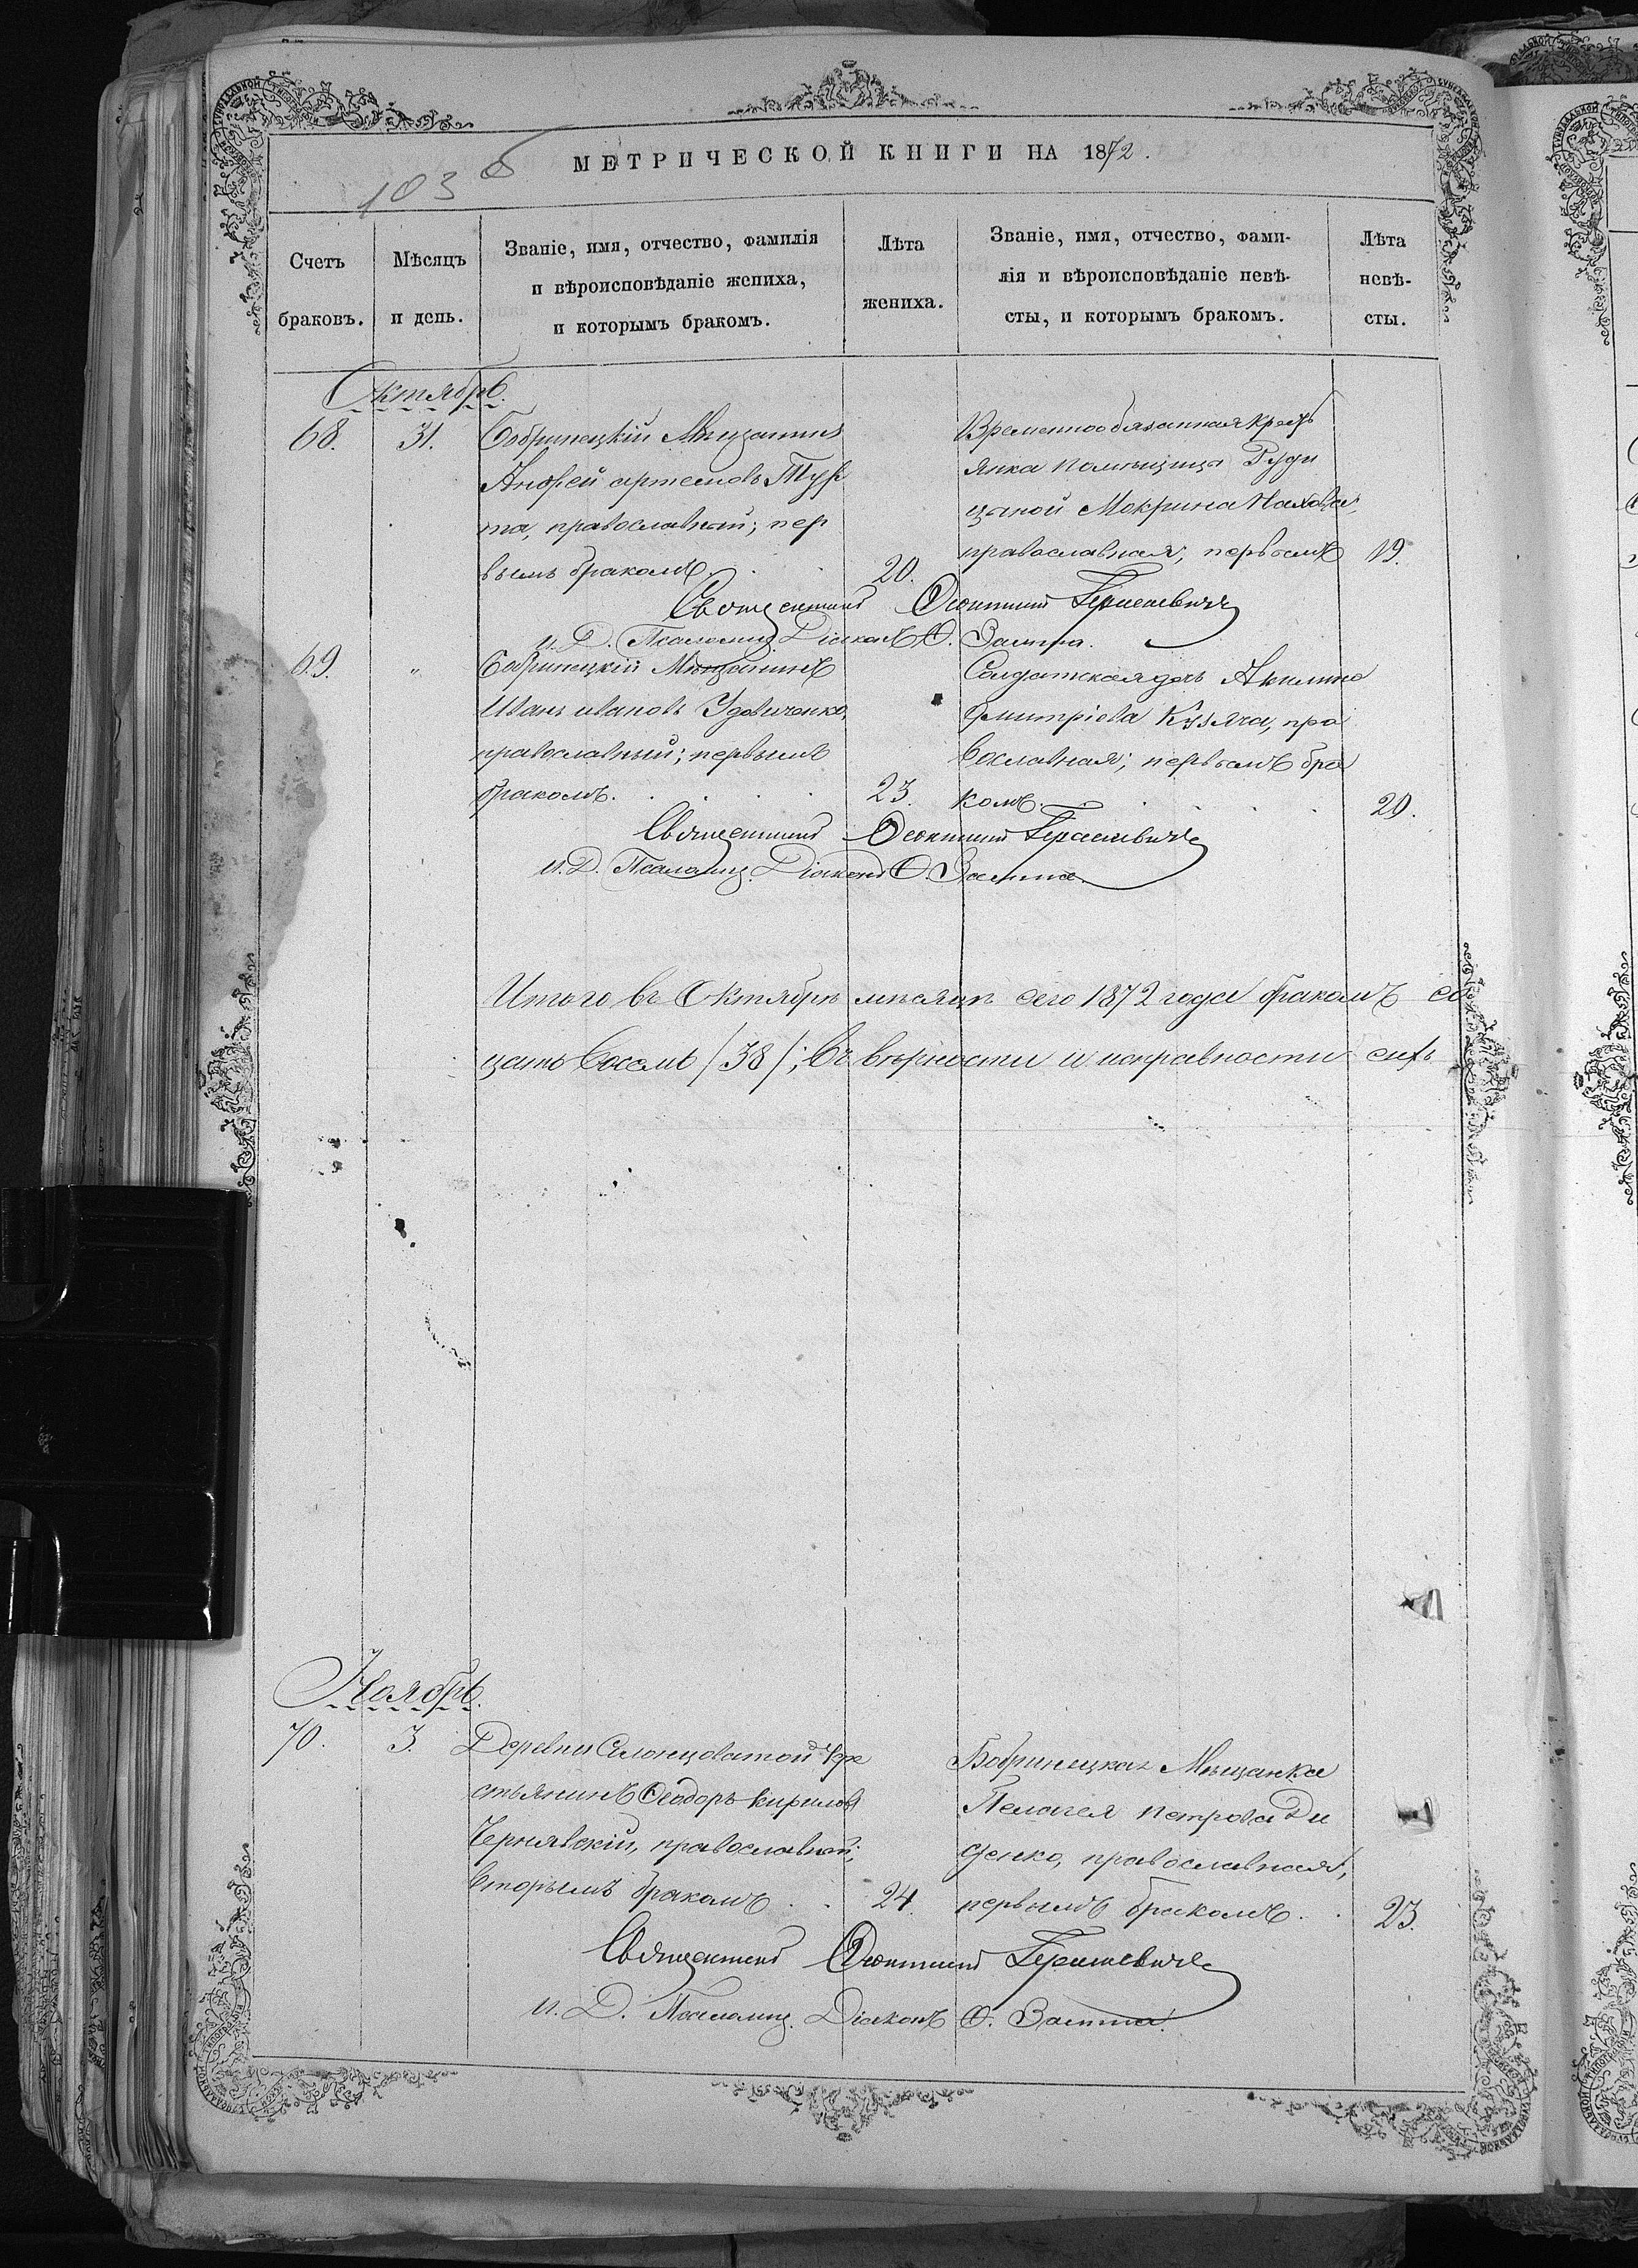 МЕТРИЧЕСКОЙ КНИГИ НА 1872.
103 б
Счетъ
браковъ.
Мѣсяцъ
и день.
Званіе, имя, отчество, фамилія
и вѣроисповѣданіе жениха,
и которымъ бракомъ.
Лѣта
жениха.
Званіе, имя, отчество, фами-
лія и вѣроисповѣданіе невѣ-
сты, и которымъ бракомъ.
Лѣта
невѣ-
сты.
Октябрь.
68. 31.
Бобринецкій Мѣщанинъ
Андрей артемовъ
та, православный; пер
вымъ бракомъ. 20.
Временнообязанная крест
янка помѣщицы Руди
цыной Мокрина
православная; первымъ 19.
Священникъ
и. Д. Псаломщ. Діаконъ Ѳ.
69. "
Бобринецкій Мѣщанинъ
Иванъ ивановъ Удовиченко,
православный; первымъ
бракомъ. 23.
Солдатская дочь Акилина
Дмитріева Кузяча, пра
вославная; первымъ бра
комъ. 20.
Священникъ
и. Д. Псаломщ. Діаконъ Ѳ.
Итого въ Октябрѣ мѣсяцѣ сего 1872 года бракомъ со
цать восемь /38/; Въ вѣрности и исправности сихъ
Ноябрь.
70. 3.
Деревни Солонцоватой Кре
стьянинъ Ѳеодоръ кириловъ
Чернявскій, православный;
вторымъ бракомъ. 24.
Бобринецкая Мѣщанка
Пелагея петрова Ди
денко, православная;
первымъ бракомъ. 23.
Священникъ
и. Д. Псаломщ. Діаконъ Ѳ.